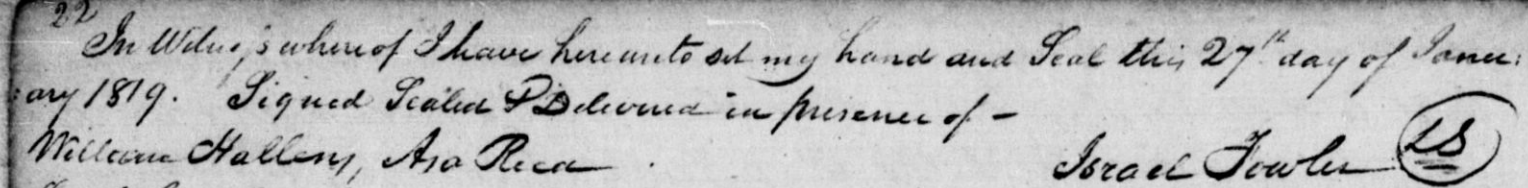 22
In Witness whereof I have hereunto set my hand and Seal this 27th day of Janu:
:ary 1819. Signed Sealed & Delivered in presence of –
William Hallens, Asa Reed Israel Fowler LS